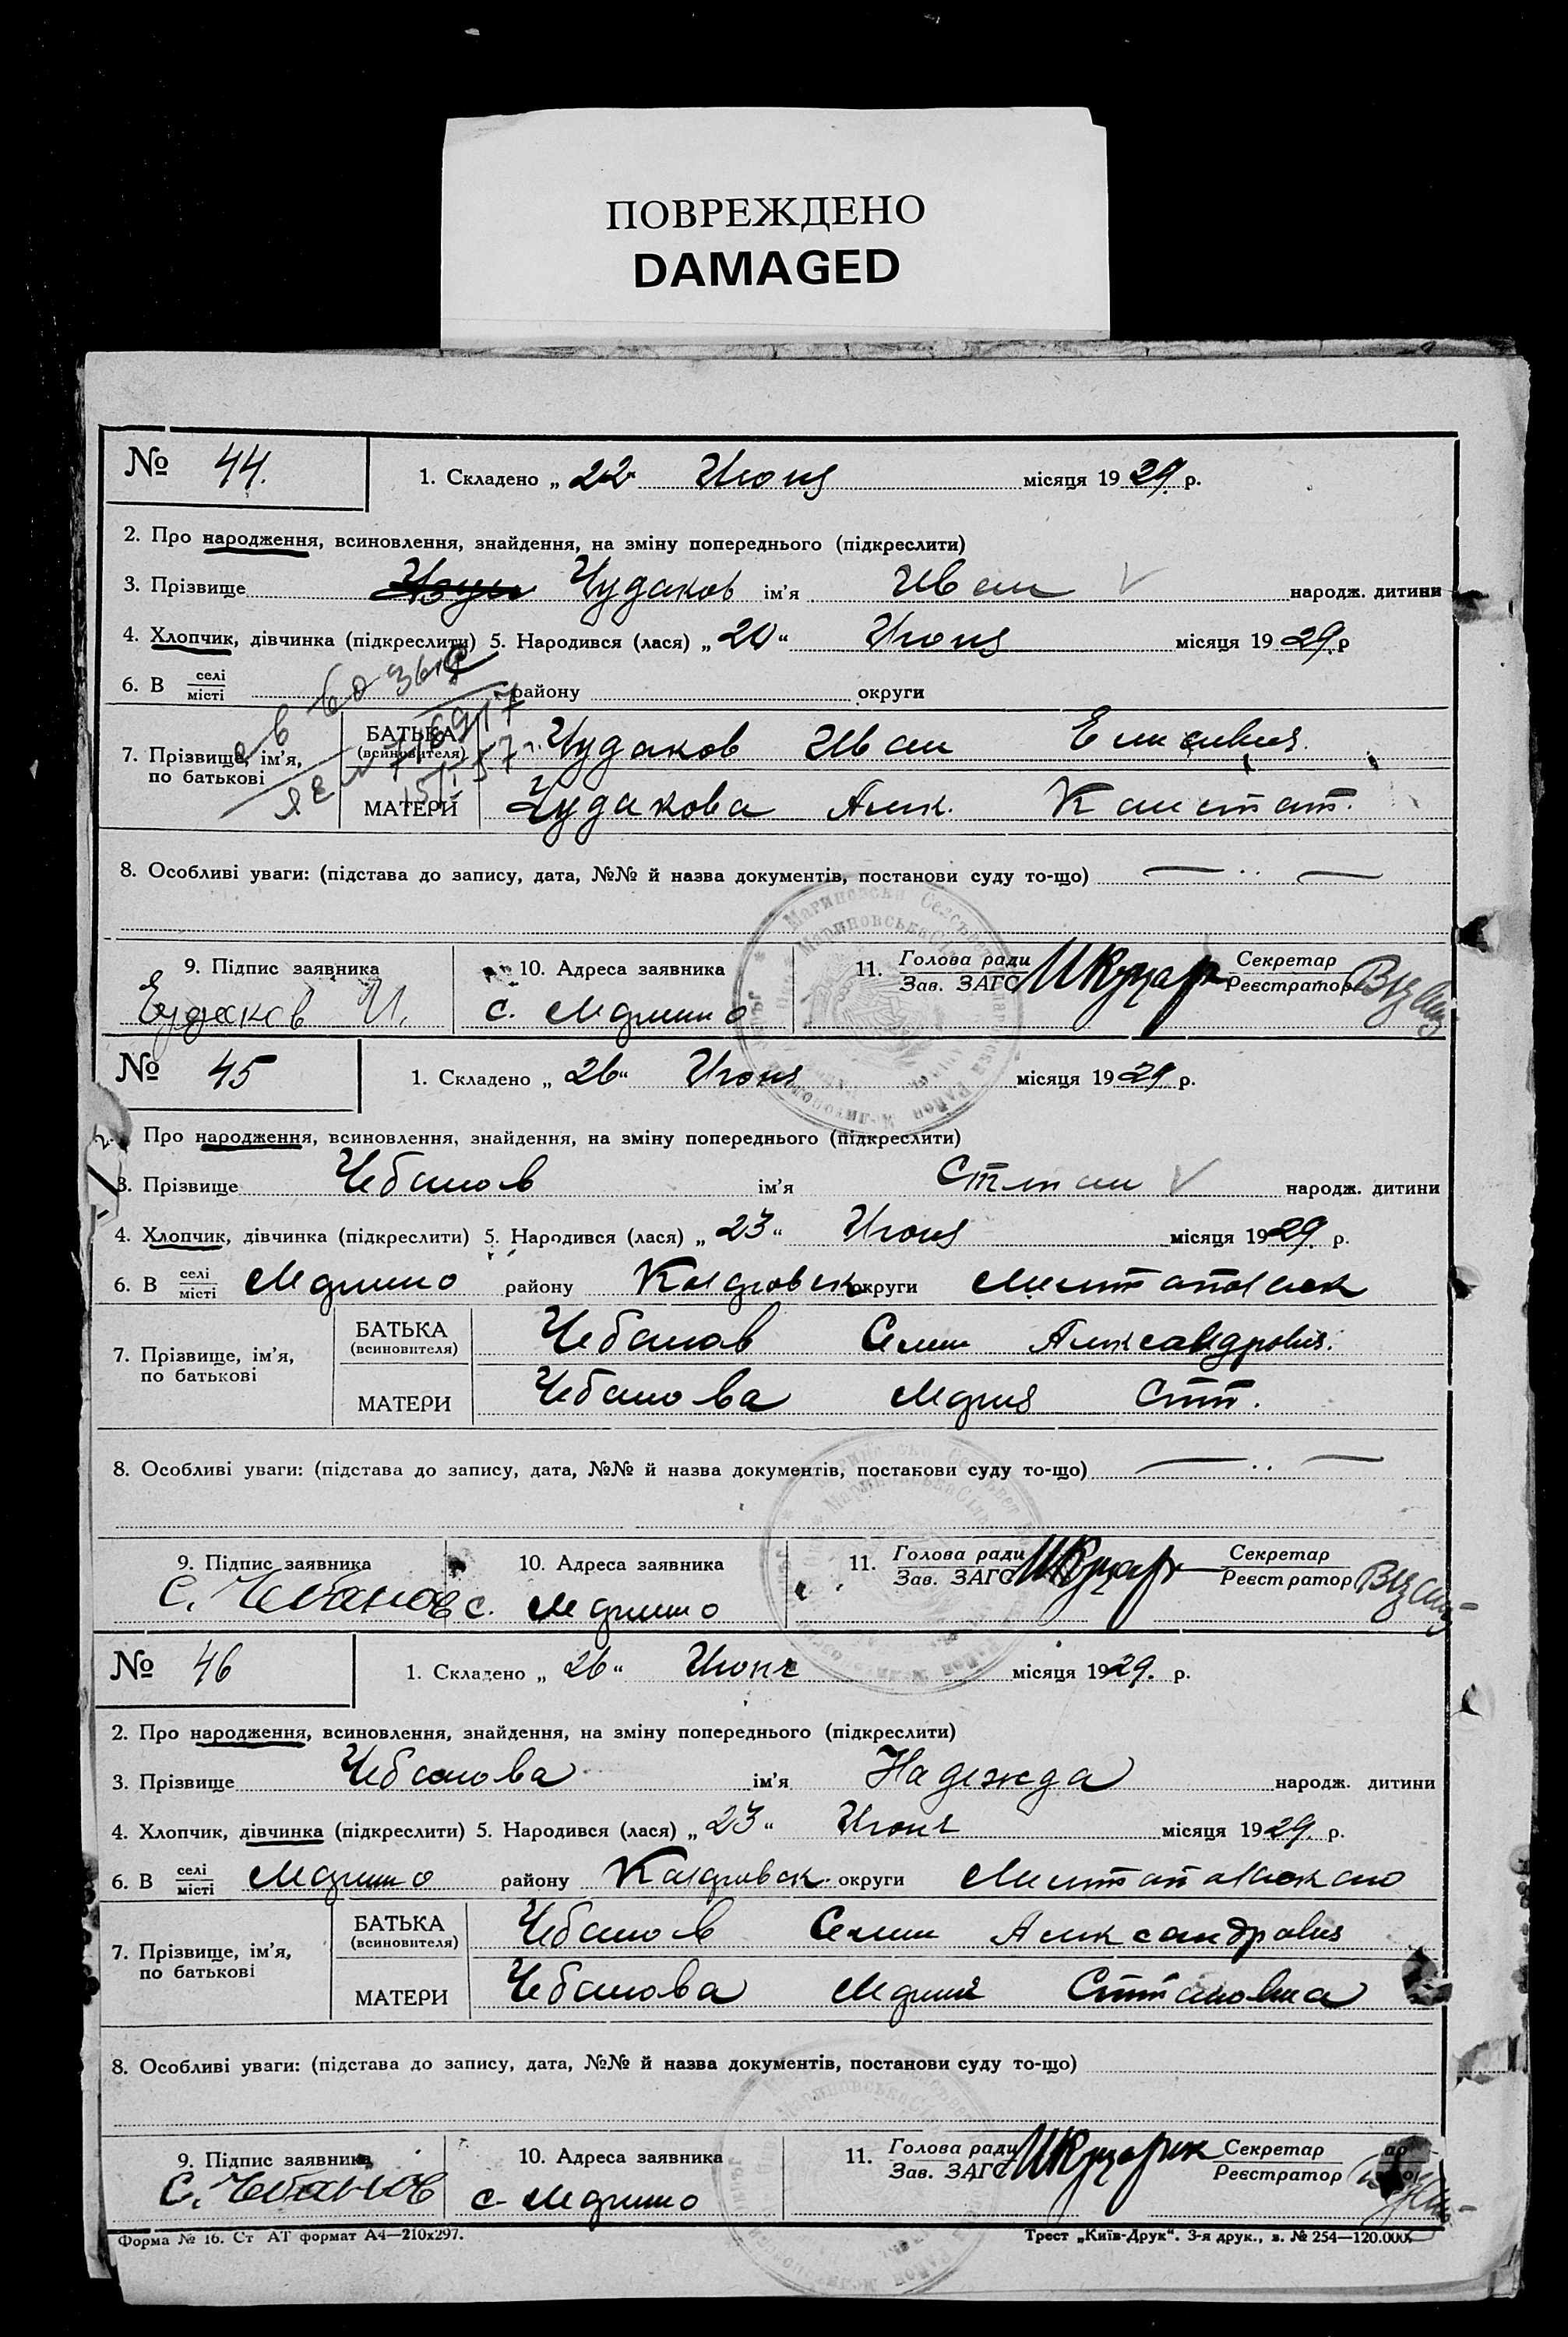 ПОВРЕЖДЕНО
DAMAGED
№ 44. 1. Складено „ 22 Июня місяця 1929 р.
2. Про народження, всиновлення, знайдення, на зміну попереднього (підкреслити)
3. Прізвище Чудаков ім'я Иван народж. дитини
4. Хлопчик, дівчинка (підкреслити) 5. Народився (лася) „ 20 “ Июня місяця 1929 р
6. В селі місті району округи
7. Прізвище, ім'я, по батькові
БАТЬКА (всиновителя) Чудаков Иван
МАТЕРИ Чудакова
8. Особливі уваги: (підстава до запису, дата, №№ й назва документів, постанови суду то-що)
9. Підпис заявника 10. Адреса заявника 11. Голова ради Зав. ЗАГС Секретар Реєстратор
И. с.
№ 45 1. Складено „ 26 “ Июня місяця 1929 р.
2. Про народження, всиновлення, знайдення, на зміну попереднього (підкреслити)
3. Прізвище Чебанов ім'я Степан народж. дитини
4. Хлопчик, дівчинка (підкреслити) 5. Народився (лася) „ 23 “ Июня місяця 1929 р.
6. В селі місті району округи
7. Прізвище, ім'я, по батькові
БАТЬКА (всиновителя) Чебанов Семен Александрович.
МАТЕРИ Чебанова Степ.
8. Особливі уваги: (підстава до запису, дата, №№ й назва документів, постанови суду то-що)
9. Підпис заявника 10. Адреса заявника 11. Голова ради Зав. ЗАГС Секретар Реєстратор
С. Чебанов с.
№ 46 1. Складено „ 26 “ Июня місяця 1929. р.
2. Про народження, всиновлення, знайдення, на зміну попереднього (підкреслити)
3. Прізвище Чебанова ім'я Надежда народж. дитини
4. Хлопчик, дівчинка (підкреслити) 5. Народився (лася) „ 23 “ Июня місяця 1929. р.
6. В селі місті району округи
7. Прізвище, ім'я, по батькові
БАТЬКА (всиновителя) Чебанов Семен Александрович
МАТЕРИ Чебанова Степановна
8. Особливі уваги: (підстава до запису, дата, №№ й назва документів, постанови суду то-що)
9. Підпис заявника 10. Адреса заявника 11. Голова ради Зав. ЗАГС Секретар Реєстратор
С. Чебанов с.
Форма № 16. Ст АТ формат А4—210х297. Трест „Київ-Друк“. 3-я друк., з. № 254—120.000.